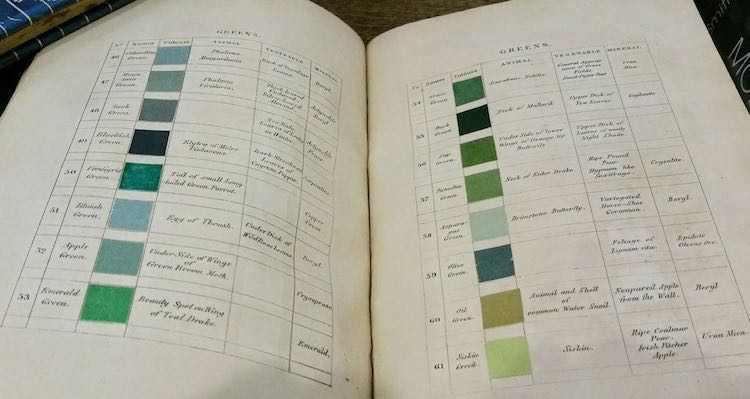 GREENS.
Names Colours ANIMAL VEGETABLE MINERAL
46 Green. Phalæna Margaritaria. Back of Leaves Beryl.
47 Green. Phalæna Viridaria.
48 Leek Green.
49 Blackish Green. Elytra of Meloe Violaceus.
50 Verdigris Green. Tail of small Long tailed Green Parrot.
51 Bluish Green. Egg of Thrush. Under Disk of Wild Rose Leaves Beryl.
52 Apple Green. Under Side of Wings of Green Broom Moth.
53 Emerald Green. Beauty Spot on Wing of Teal Drake. Emerald.
GREENS.
No. Names Colours ANIMAL VEGETABLE MINERAL
54 Grass Green Scarabæus Nobilis. General Appearance of Grass Fields Sweet Sugar Pear Uran Mica.
55 Duck Green Neck of Mallard. Upper Disk of Yew Leaves
56 Sap Green Under Side of lower Wings of Orange tip Butterfly Upper Disk of Leaves of woody Night Shade.
57 Pistachio Green Neck of Eider Drake. Ripe Pound Pear Hypnum like Saxifrage. Crysolite.
58 Asparagus Green. Brimstone Butterfly. Variegated Horse-Shoe Geranium. Beryl.
59 Olive Green. Foliage of Lignum vitæ. Epidote Olvene Ore.
60 Oil Green. Animal and Shell of common Water Snail. Nonpareil Apple from the Wall. Beryl
61 Siskin Green. Siskin. Ripe Coalmar Pear Irish Pitcher Apple. Uran Mica.